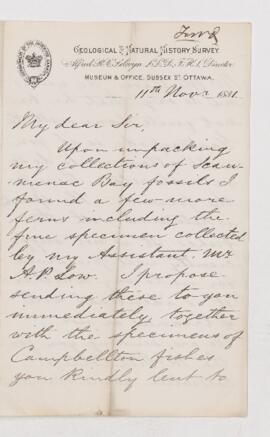 GEOLOGICAL AND NATURAL HISTORY SURVEY.
Alfred R. C. Selwyn, L.L.D., F.R.S., Director
MUSEUM & OFFICE, SUSSEX ST. OTTAWA.
11th Novr 1881.
My dear Sir,
Upon unpacking
my collections of Scau-
menac Bay fossils I
found a few more
ferns including the
fine specimen collected
by my Assistant, Mr
A.P. Low. I propose
sending these to you
immediately together
with the specimens of
Campbellton fishes
you kindly lent to